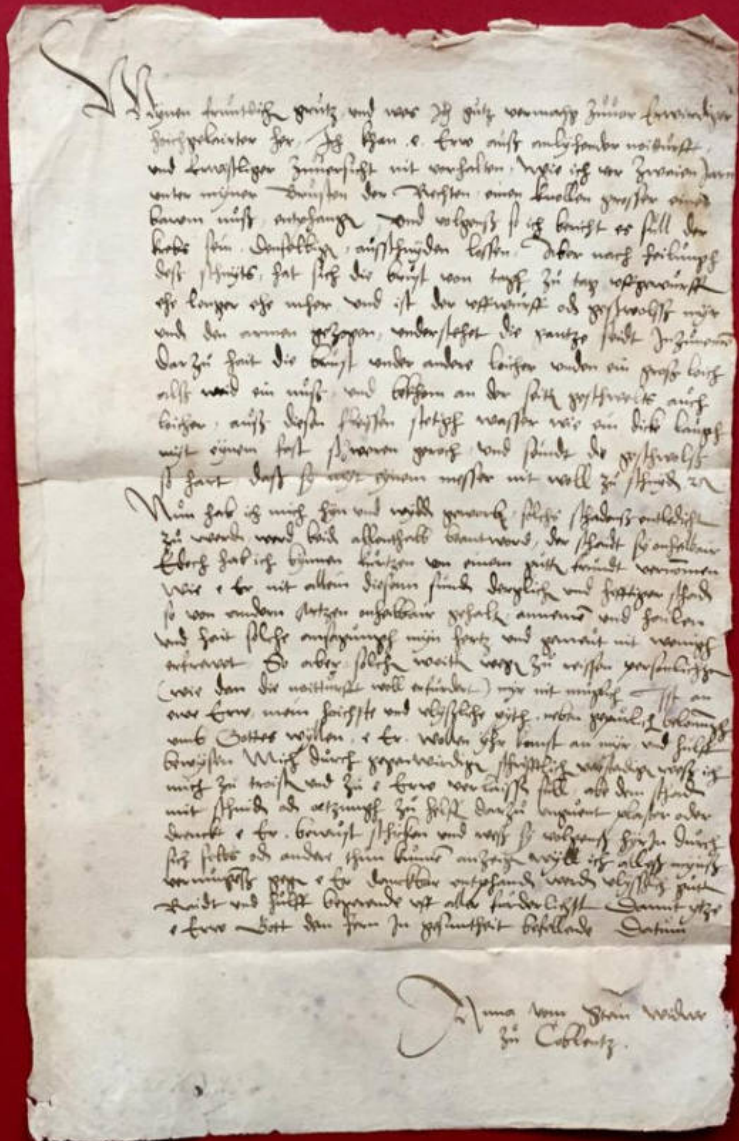 Mynen fruntlich grutz und was Ich gutz vermagh zuvor Erwirdiger
hoichgelairter her, Ich khan e Erw auß anlyhender noitturfft
und zuversicht nit verhalten, wie ich vor zwaien Jarn
unter myner brusten der Rechten einen knollen groesser einer
bawm nuß entphangen und volgenß so ich bericht es sull der
krebs sein, denselbigen, ausschnyden lassen, Aber nach heilungh
deß schnyts, hat sich die brust von tagh zu tag uffgewurfft
ehe lenger ehe mher und ist der uffwurff oder geschwolst myr
under den armen gezogen, understehet die gantze seidt Inzunemen
dar zu hait die brust under andere locher unden ein groß loch
alß weid ein nuß, und bekhom an der seiten geschwolst auch
locher, auß diesen fleyssen stetigh wasser wie ein dick laugh
myt eynem fast schweren geroch, und seindt die geschwolst
so hart daß sy myt eynem messer nit woll zu schnyden
Nun hab ich mich hyn und widder beworben, solchs schadenß entledicht
zu werden, werd beid allenthalb beantword, der schadt sy onheilbar
Edoch hab ich bynnen kurtzen von einem guten frundt vernommen
wie e Er nit allein diesem sunder derglichen und hefftiger schaden
so von andern Artzen onheilbar gehalten annemen und heilen
und hait solche ansagungh myn hertz und gemeut nit wenigh
erfrewet So aber solchen weiten wegh zu reissen personlichen
(wie dan die noitturfft woll erfurdert) myr nit muglich Ist an
ewe Erw, mein hoichste und vlyßliche pith, neben belonungh
umb Gottes wyllen, e Er. wollen yhr kunst an myr und hilff
bewysen Mich durch gegenwirdigen schrifftlich verstendigen weß ich
mich zu troisten und zu e Erw verlaissen sull, abe dem schaden
mit schniden oder etzungh zu helffen darzu unguent plaster oder
dranck e Er. bewust schicken und weß sy volgenß hyrIn durch
sich selbs oder andere thun kunnen anzeigen wyll ich alleß mynß
vermugenß gegen e Er danckbar entphanden werden vlyssich guten
Raidt und hulff begerende uff aller furderlichst Damit
e Erw Gott dem hern In gesuntheit befellende Datum
Anna vom Stein widwe
zu Coblentz.